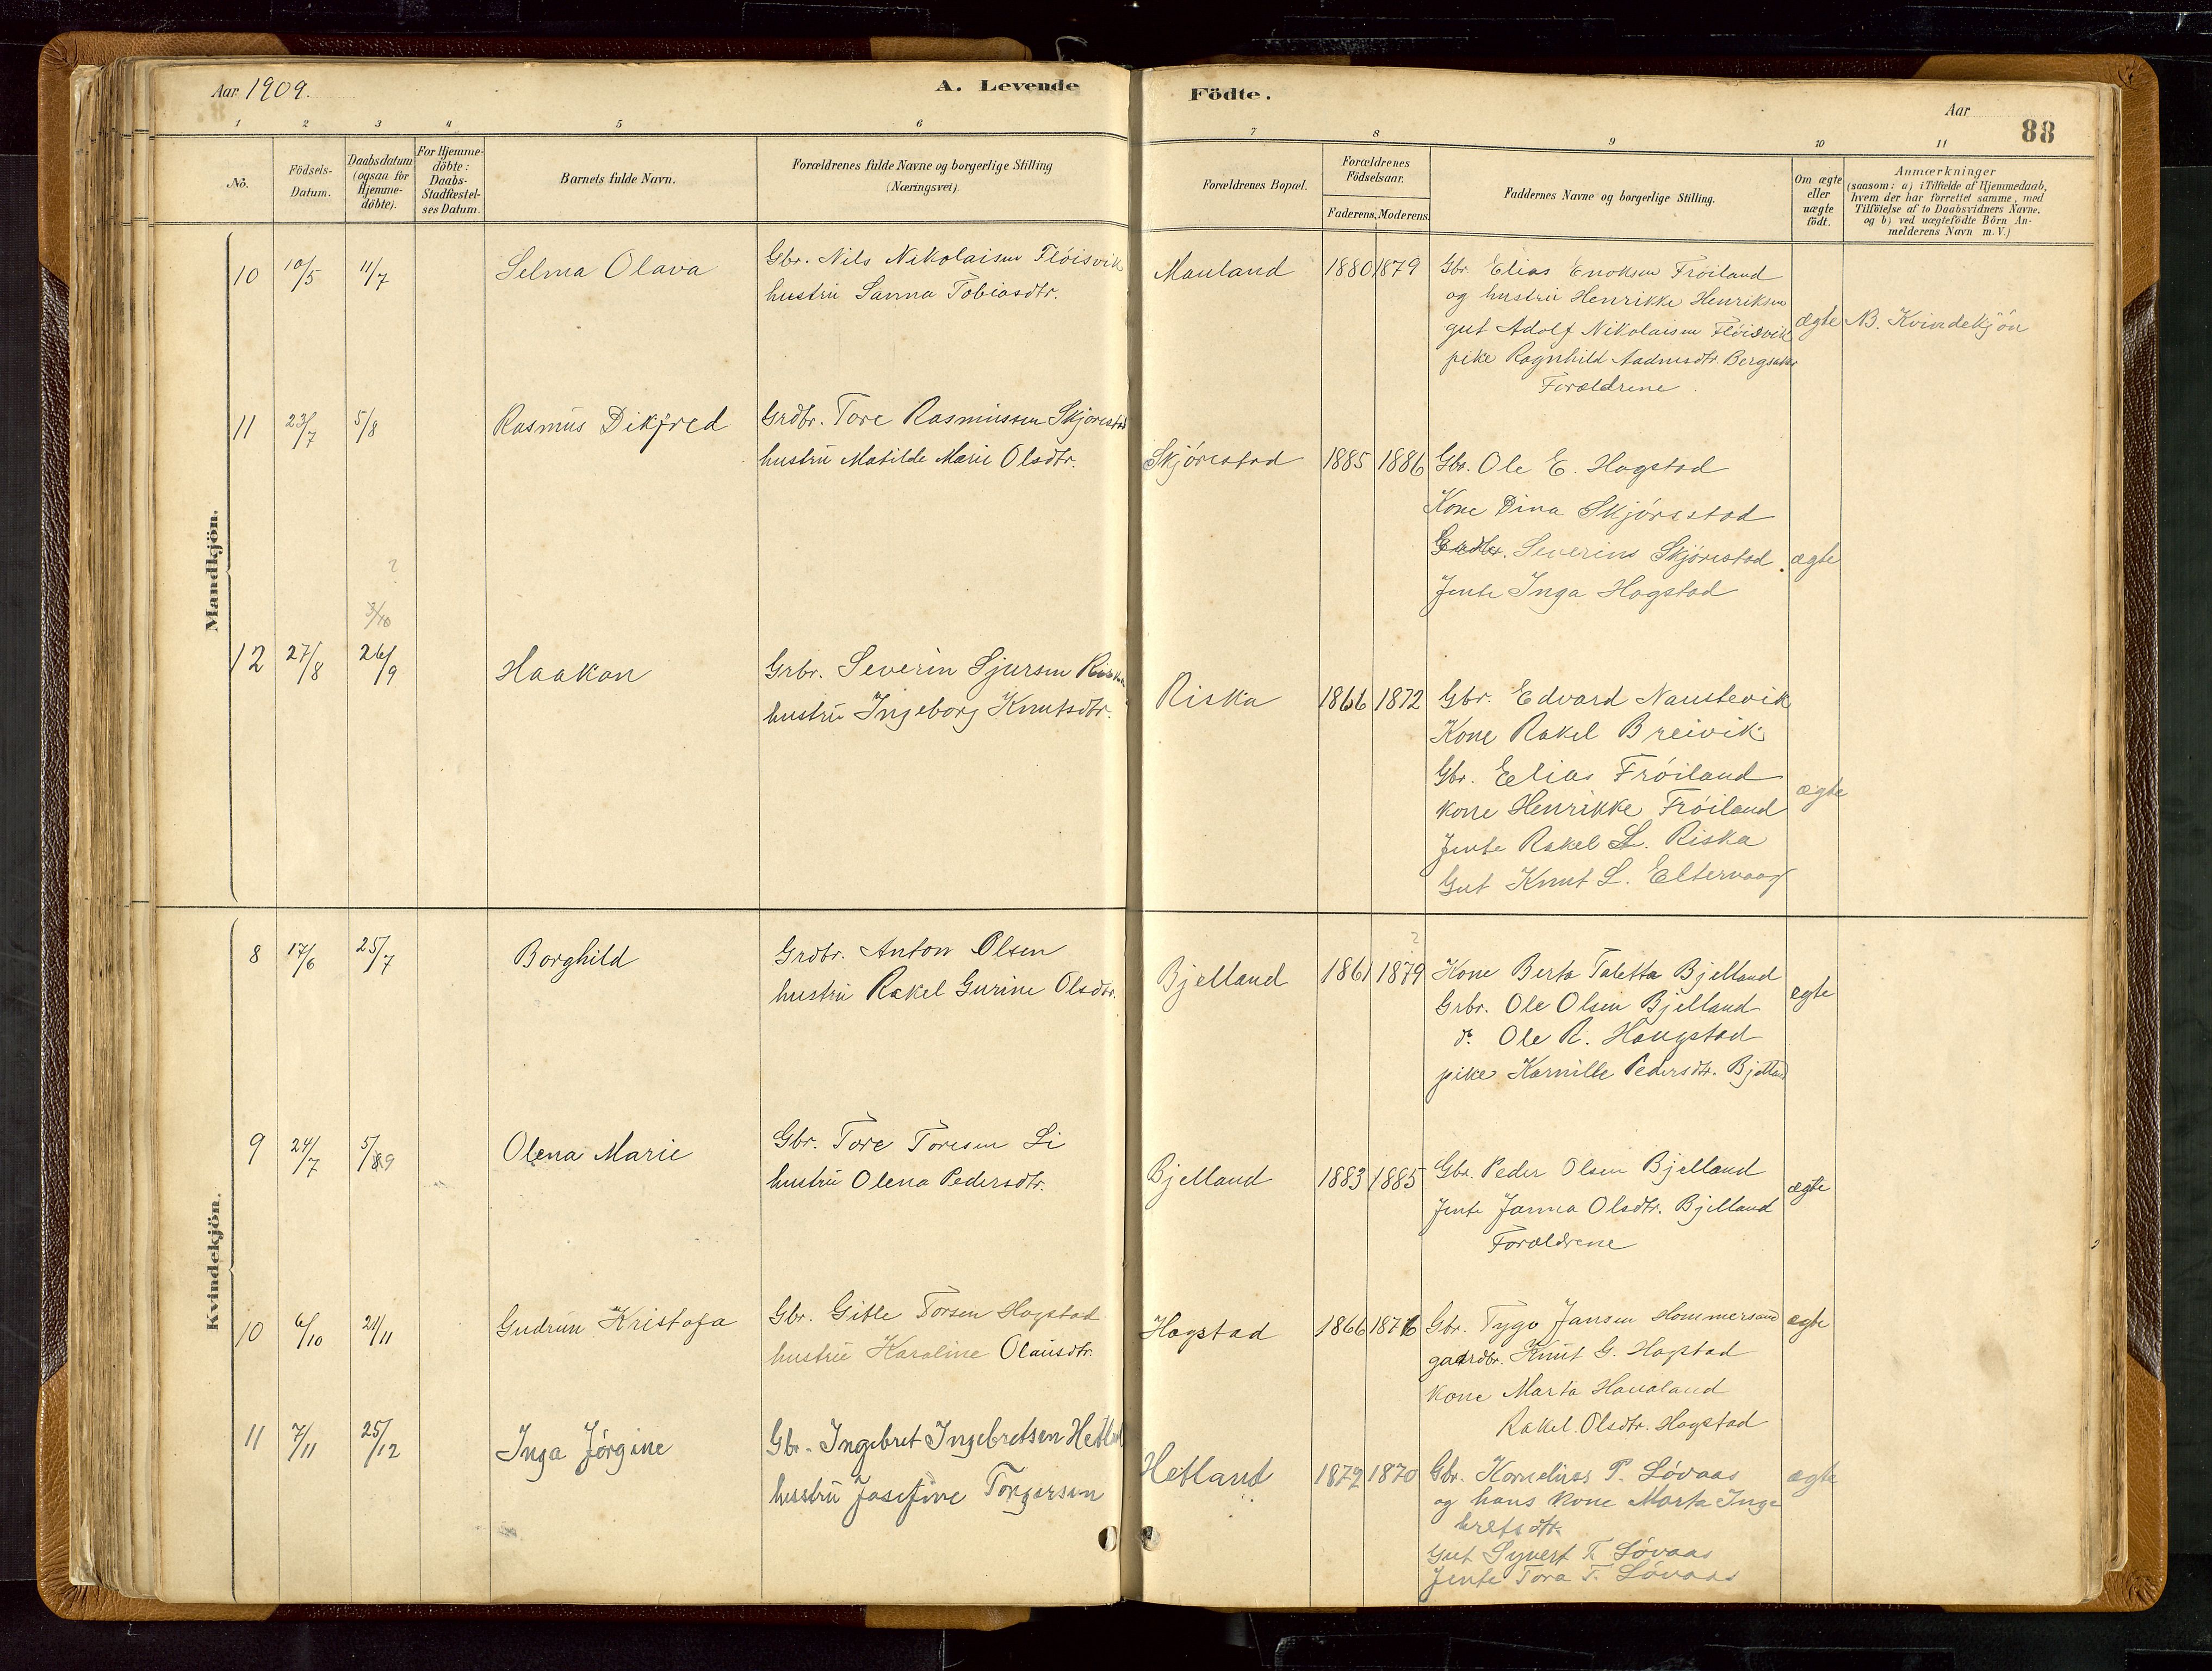 Aar 1909.
A. Levende
Födte.
Aar
88
1 2 3 4 5 6 7 8 9 10 11
No.
Födsels-
Datum.
Daabsdatum
(ogsaa for
Hjemme-
döbte).
For Hjemme-
döbte:
Daabs-
Stadfæstel-
ses Datum.
Barnets fulde Navn.
Forældrenes fulde Navne og borgerlige Stilling
(Næringsvei).
Forældrenes Bopæl.
Forældrenes
Födselsaar.
Faderens. Moderens.
Faddernes Navne og borgerlige Stilling.
Om ægte
eller
uægte
födt.
Anmærkninger
(saasom: a) i Tilfælde af Hjemmedaab,
hvem der har forrettet samme, med
Tilföielse af to Daabsvidners Navne,
og b) ved uægtefödte Börn An-
melderens Navn m. V.)
Mandkjön.
10 10/5 11/7 Selma Olava
Gbr. Nils Nikolaisen Flöisvik
hustru Sanna Tobiasdtr.
Mauland 1880 1879
Gbr. Elias Enoksen Fröiland
og hustru Henrikke Henriksen
gut Adolf Nikolaisen Flöisvik
pike Ragnhild Aadnesdtr. Bergsaker
Forældrene.
ægte NB. Kvindekjön
11 23/7 5/8 Rasmus Dikfred
Grdbr. Tore Rasmussen Skjörestad
hustru Matilde Marie Olsdtr.
Skjörestad 1885 1886
Gbr. Ole E. Hogstad
Kone Dina Skjörestad
Severins Skjörestad.
Jente Inga Hogstad
ægte
?
3/10
12 27/8 26/9 Haakon
Grbr. Severin Sjursen Riska
hustru Ingeborg Knutsdtr.
Riska 1866 1872
Gbr. Edvard Naustevik
Kone Rakel Breivik
Gbr. Elias Fröiland
kone Henrikke Fröiland
Jente Rakel S. Riska
Gut Knut L. Eltervaag
ægte
Kvindekjön.
8 17/6 25/7 Borghild
Grdbr. Anton Olsen
hustru Rakel Gurine Olsdtr.
Bjelland 1861 1879
?
Kone Berta Taletta Bjelland
Grbr. Ole Olsen Bjelland
do. Ole R. Haugstad
pike Karnille Pedersdtr. Bjelland
ægte
9 24/7 5/9 Olena Marie
Gbr. Tore Toresen Li
hustru Olena Pedersdtr.
Bjelland 1883 1885
Gbr. Peder Olsen Bjelland
Jente Janna Olsdtr. Bjelland
Forældrene
ægte
10 6/10 21/11 Gudrun Kristofa
Gbr. Gitle Torsen Hogstad
hustru Karoline Olausdtr.
Hogstad 1866 1876
Gbr. Tygo Jansen Hommersand
gaardbr. Knut G. Hogstad
kone Marta Haualand
Rakel Olsdtr. Hogstad
ægte
11 7/11 25/12 Inga Jörgine
Gbr. Ingebret Ingebretsen Hetland
hustru Josefine Torgersen
Hetland 1872 1870
Gbr. Kornelius P. Lövaas
og hans kone Marta Inge
bretsdtr.
Gut Syvert T. Lövaas
Jente Tora T. Lövaas
ægte